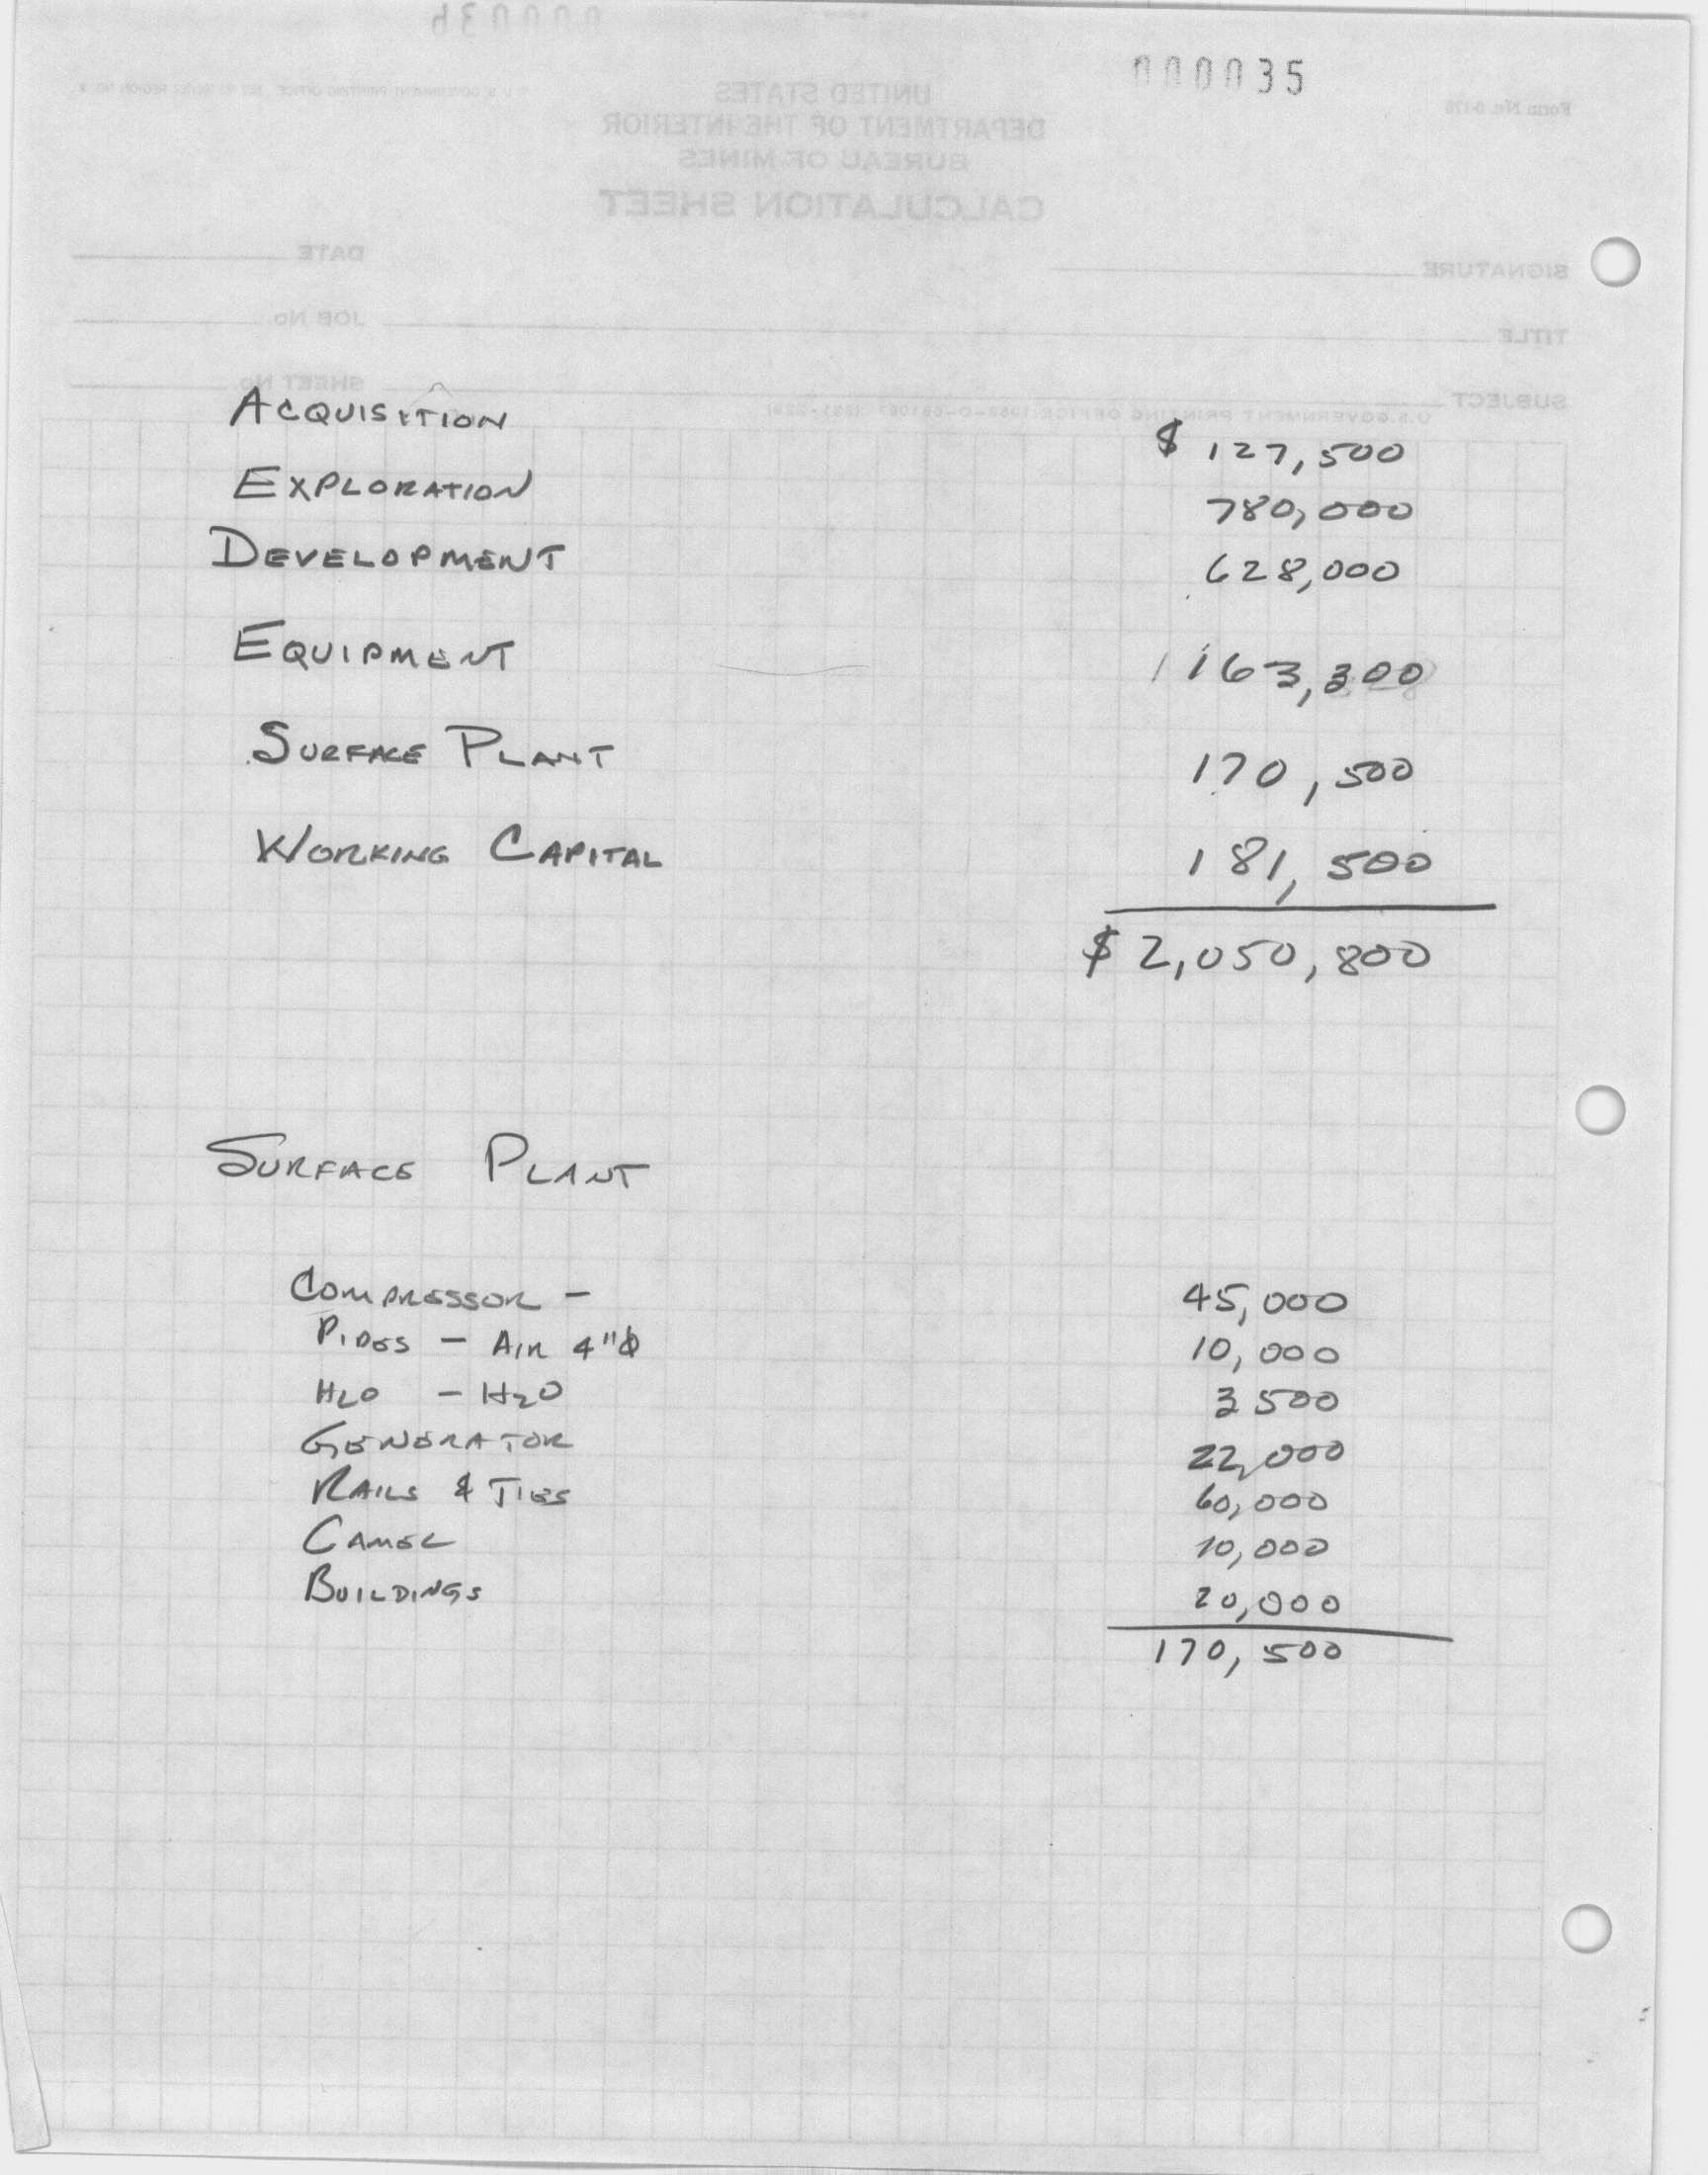 000034
000035
U.S. GOVERNMENT PRINTING OFFICE
Form No. 6-176
UNITED STATES
DEPARTMENT OF THE INTERIOR
BUREAU OF MINES
CALCULATION SHEET
SIGNATURE DATE
TITLE JOB No.
SUBJECT SHEET No.
U.S. GOVERNMENT PRINTING OFFICE
ACQUISITION $ 127,500
EXPLORATION 780,000
DEVELOPMENT 628,000
EQUIPMENT 163,300
SURFACE PLANT 170,500
WORKING CAPITAL 181,500
$ 2,050,800
SURFACE PLANT
COMPRESSOR - 45,000
PIPES - AIR 4"ϕ 10,000
H2O - H2O 3500
GENERATOR 22,000
RAILS & TIES 60,000
CAMEL 10,000
BUILDINGS 20,000
170,500